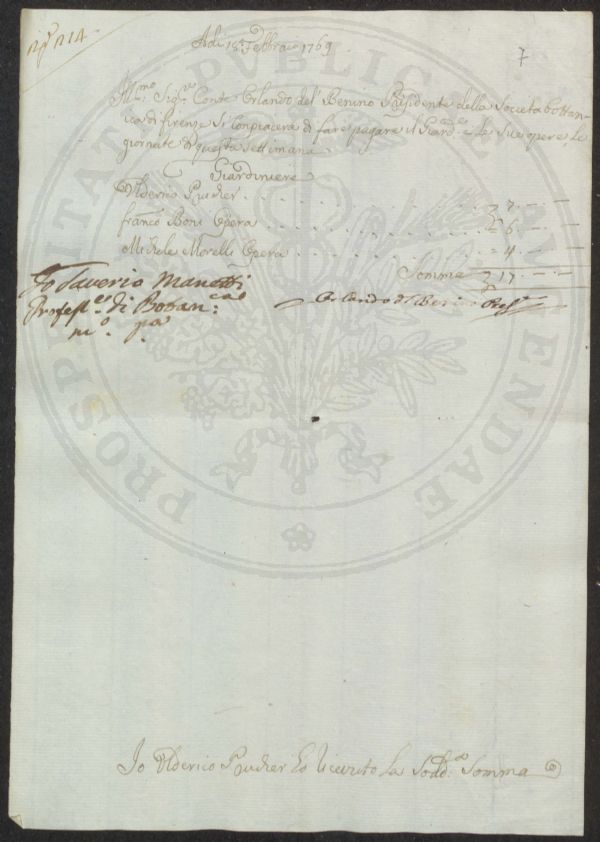 nº 214
7
Adi 18. Febbraio 1769
Ill.mo Sig.re Conte Orlando del Benino Presidente della Societa Bottan=
ica di firenze Si Conpiacera di fare pagare il Giard.re e le Sue opere le
giornate di questa Settimana
Giardiniere
Ulderico Prucher 7
franco Boni Opera 6
Michele Morelli Opera 4
Somma 17
Io Saverio Manetti
Profess.re di Botan.ca
m.o p.a
Orlando del Benino Pres.te
Io Ulderico Prucher Ho Ricevuto La Sodd.a Somma
PROSPERITATI PUBLICAE AUGENDAE